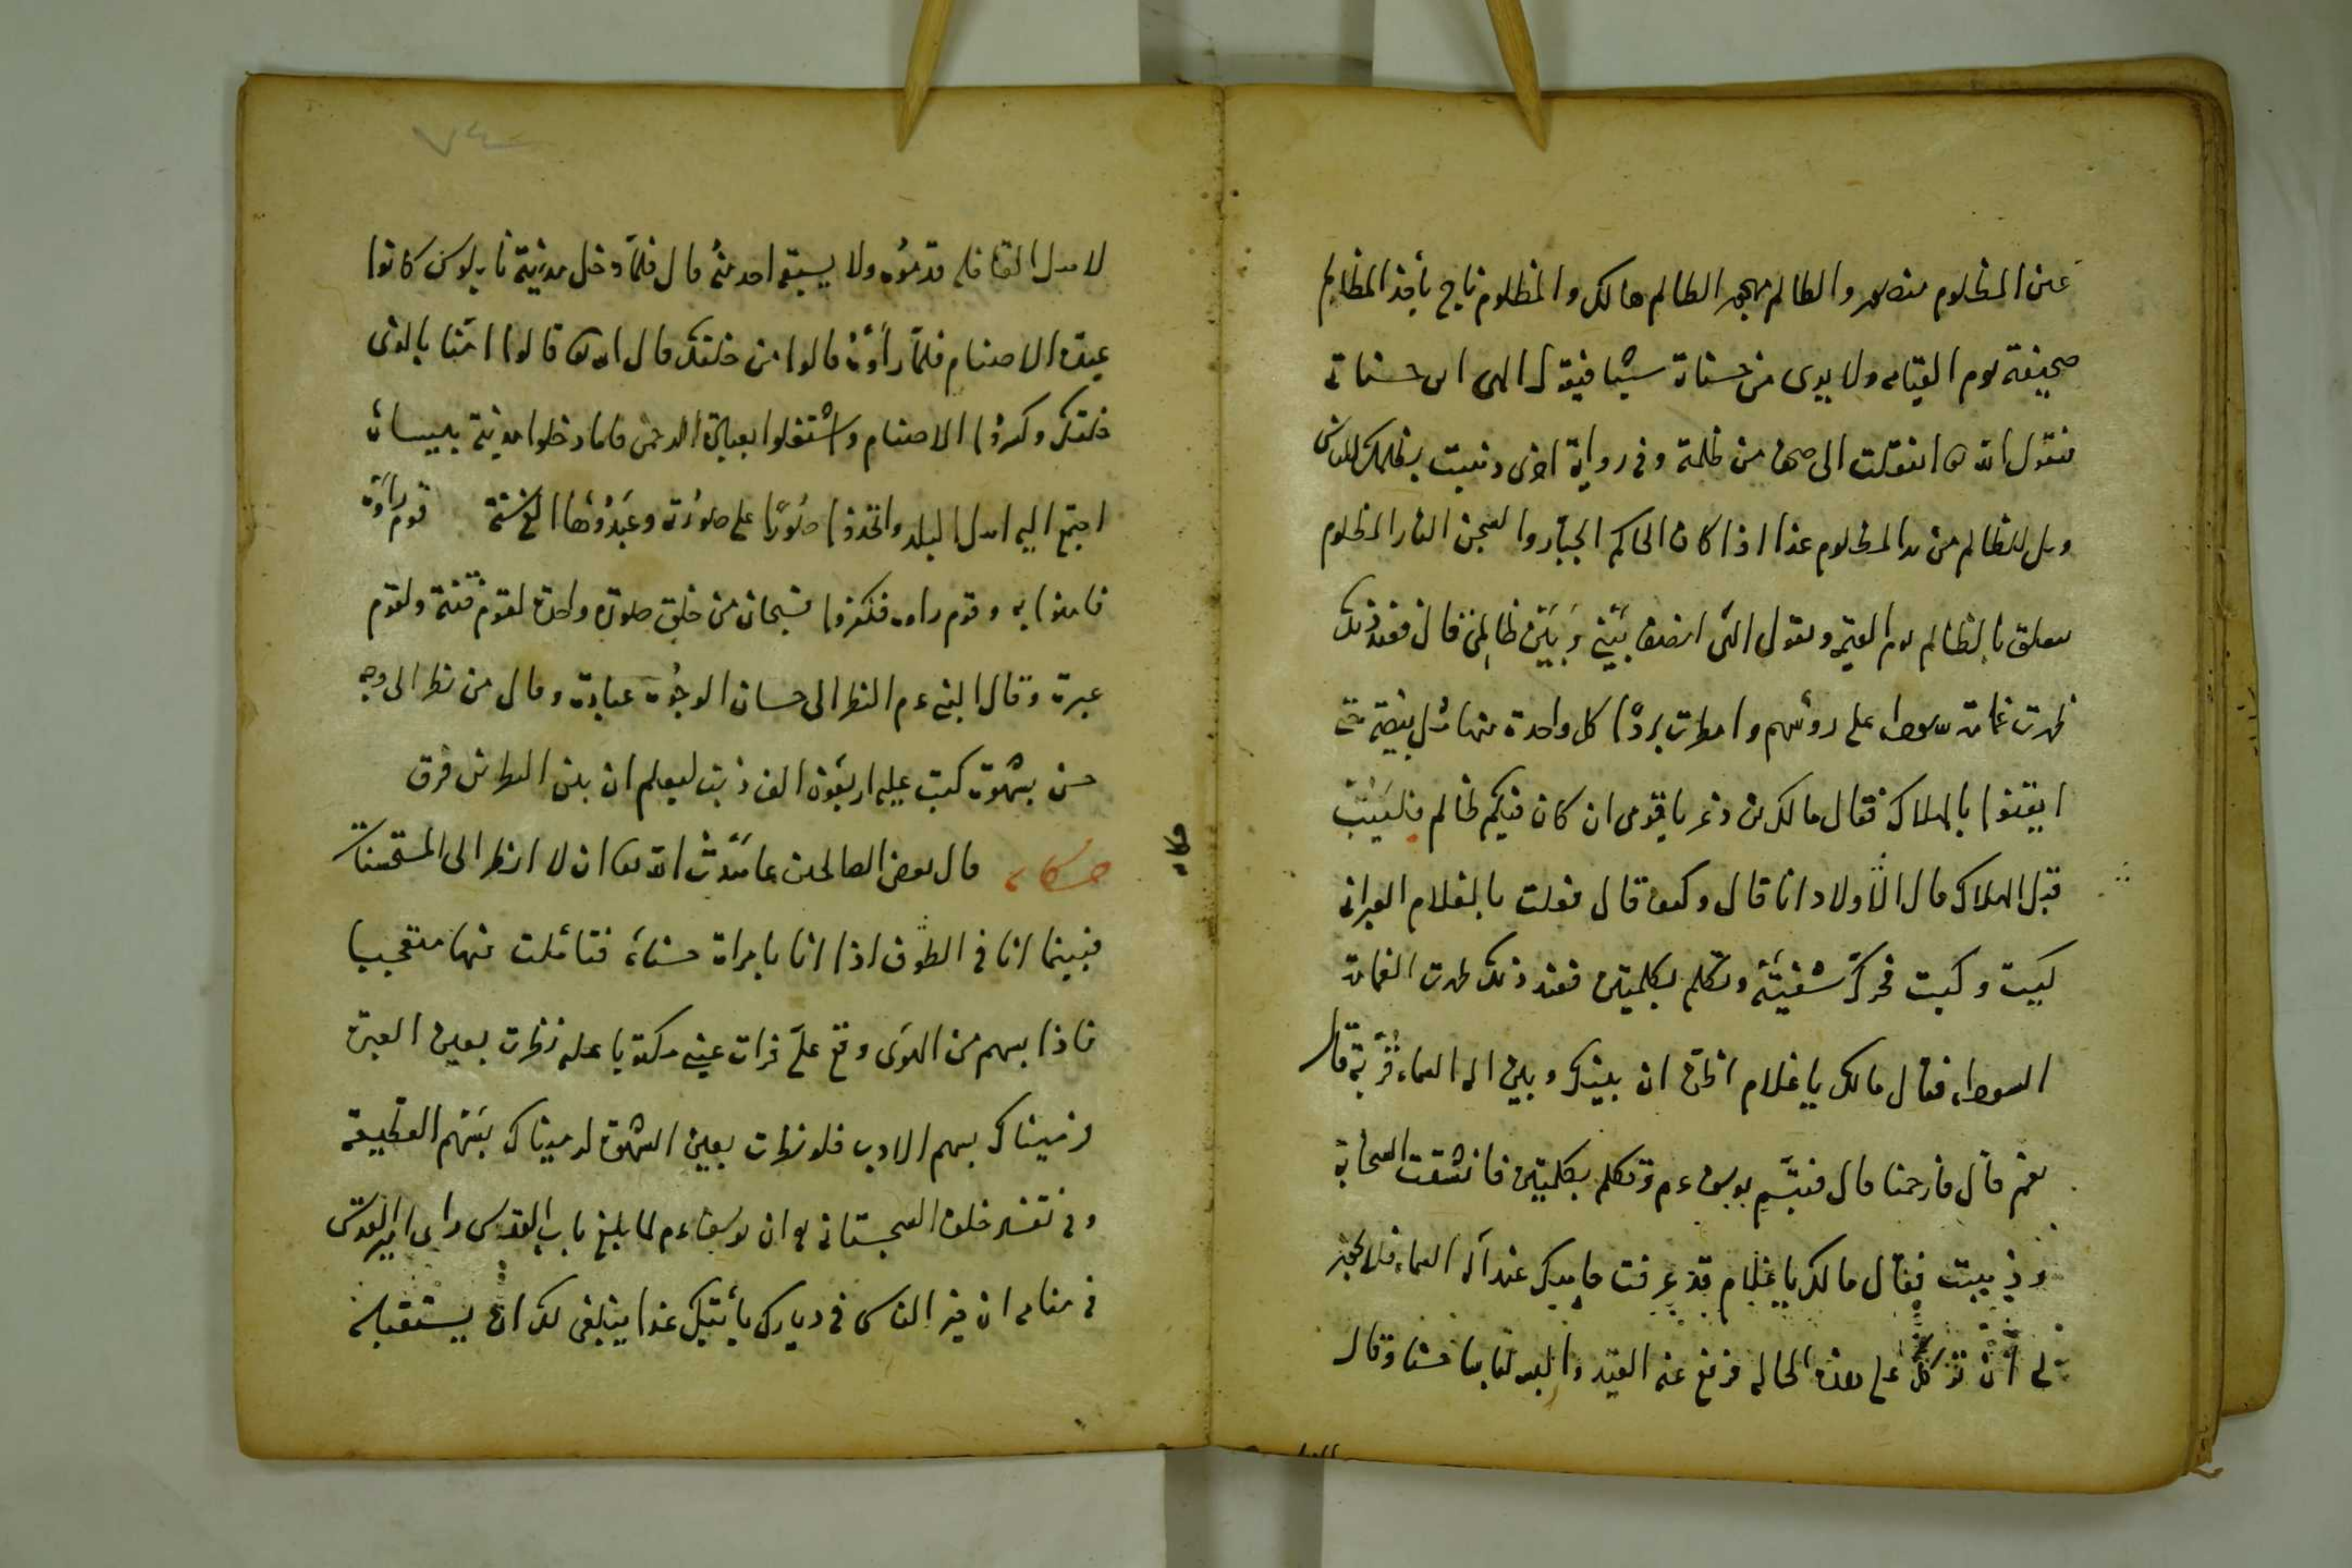 عن المظلوم منصور والظالم مهجور الظالم هالك والمظلوم ناج يأخذ المظالم
صحيفة يوم القيامه ولا يرى من حسناته شيئا فيقول الهى اين حسناتى
فيقول الله تعا انتقلت الى صحائف من ظلمته وفى رواية اخرى ذهبت بظلمك للناس
ويل للظالم من يد المظلوم غدا اذا كان الحاكم الجبار والسجن النار المظلوم
يتعلق بالظالم يوم القيمة ويقول الهى انصف بَيْنِى وَبَيْنَ ظالمى قال فعند ذلك
ظهرت غمامة سوداء على رؤسهم وامطرت بردًا كل واحدة منها مثل بيضة حتى
ايقنوا بالهلاك فقال مالك بن ذعر يا قومى ان كان فيكم ظالم فليتب
قبل الهلاك قال الأولاد انا قال وكيف قال فعلت بالغلام العبرانى
كيت وكيت فحرك شفتيه وتكلم بكلمتين فعند ذلك ظهرت الغمامة
السوداء فقال مالك يا غلام اظن ان بينك وبين اله السماء قربة قال
نعم قال فارحمنا قال فتبسم يوسف ءم وتكلم بكلمتين فانشقت السحابة
وذهبت فقال مالك يا غلام قد عرفت ما لك عند اله السماء فلا يجوز
لى أن نتركك على هذه الحاله فرفع عنه القيد والبسه لباسا حسنا وقال
لاهل القافله قدموه ولا يسبقه احد منه قال فلما دخل مدينة نابلوس كانوا
عبدة الاصنام فلما رأوه قالوا من خلقك قال الله تعا قالوا امنا بالذى
خلقك وكسروا الاصنام واشتغلوا بعبادة الرحمن فلما دخلوا مدينة بيسان
اجتمع اليه اهل البلد واتخذوا صُورًا على صورته وعَبَدُوها الف سنة قوم رأوه
فامنوا به وقوم راوه فكفروا فسبحان من خلق صورة واحدة لقوم فتنة ولقوم
عبرة وقال النبى ءم النظر الى حسان الوجُوه عبادة وقال من نظر الى وجه
حسن بشهوة كتب عليه اربعون الف ذنب ليعلم ان بين النظرين فرق
حكايه قال بعض الصالحين عاهدت الله تعا ان لا انظر الى المستحسنات
فبينما انا فى الطوف اذا انا بامراة حسناء فتأملت منها متعجبا
فاذا بسهم من الهوى وقع على فرات عينى مكتوبا عليه نظرت بعين العبرة
فرميناك بسهم الادب فلو نظرت بعين الشهوة لرميناك بسهم القطيعة
وفى تفسير خلف السجستانى ان يوسف ءم لما بلغ باب القدس راى امير القدس
فى منامه ان خير الناس فى ديارك يأتيك غدا ينبغى لك ان يستقبله
حكايه